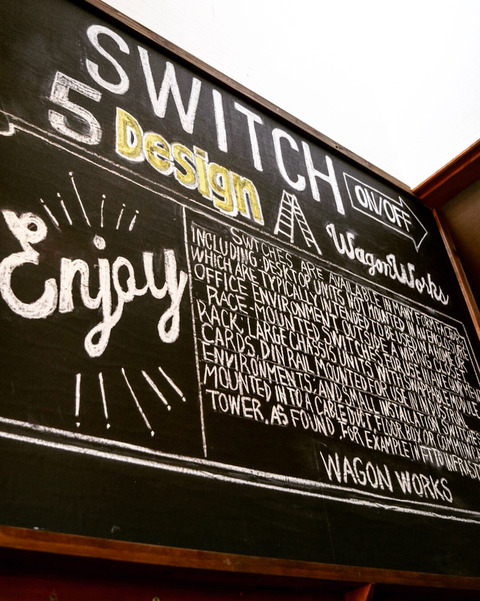 SWITCH
5 Design
ON/OFF
WagonWorks
Enjoy
SWITCHES ARE AVAILABLE IN MANY FORM FACTORS
INCLUDING DESKTOP UNITS NOT MOUNTED IN AN ENCLOSURE
WHICH ARE TYPICALLY INTENDED TO BE USED IN A HOME OR
OFFICE ENVIRONMENT OUTSIDE A WIRING CLOSET
RACK-MOUNTED SWITCHES FOR USE IN AN EQUIPMENT
RACK; LARGE CHASSIS UNITS WITH SWAPPABLE MODULE
CARDS; DIN RAIL MOUNTED FOR USE IN INDUSTRIAL
ENVIRONMENTS; AND SMALL INSTALLATION SWITCHES
MOUNTED INTO A CABLE DUCT, FLOOR BOX OR COMMUNICATIONS
TOWER, AS FOUND, FOR EXAMPLE IN FTTO INFRAST
WAGON WORKS